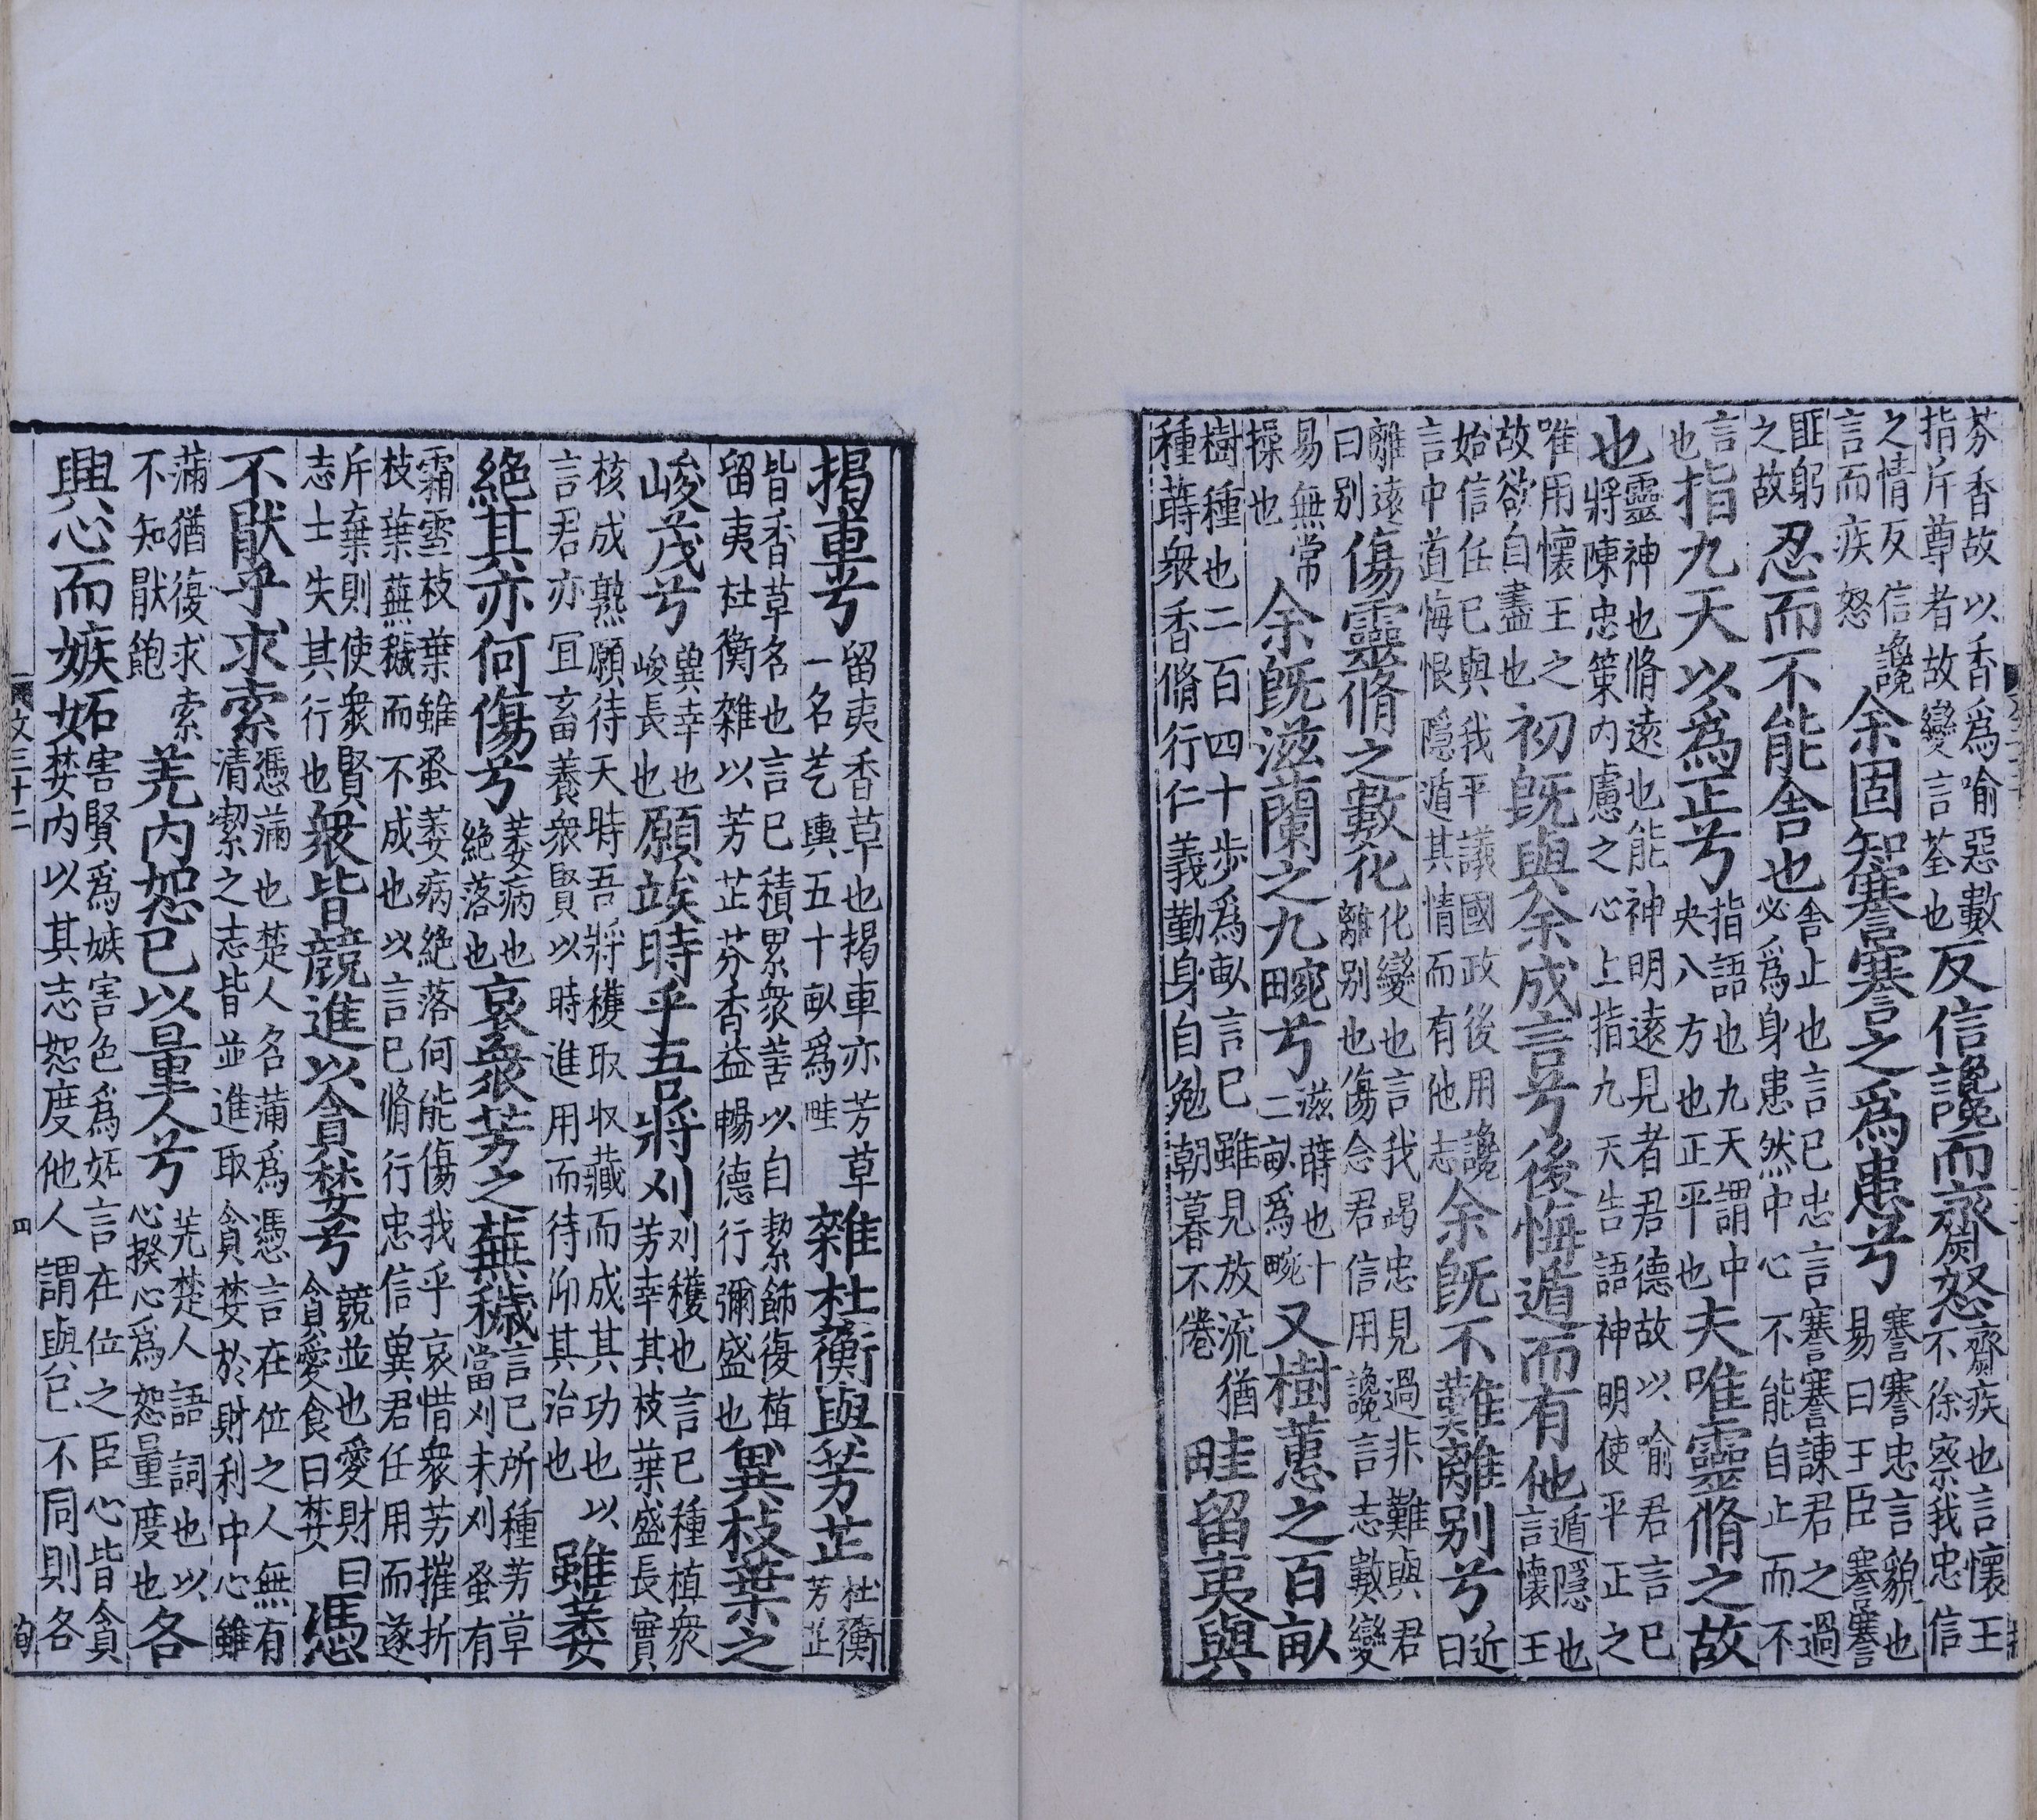 芬香故以香爲喻惡數指斥尊者故變言荃也反信讒而齌怒齌疾也言懷王不徐察我忠信
之情反信讒言而疾怒余固知謇謇之爲患兮謇謇忠言貌也易曰王臣謇謇
匪躬之故忍而不能舍也舍止也言已忠言謇謇諫君之過必爲身患然中心不能自止而不
言也指九天以爲正兮指語也九天謂中央八方也正平也夫唯靈脩之故
也靈神也脩遠也能神明遠見者君德故以喻君言已將陳忠策内慮之心上指九天告語神明使平正之
唯用懷王之故欲自盡也初旣與余成言兮後悔遁而有他遁隱也言懷王
始信任已與我平議國政後用讒言中道悔恨隱遁其情而有他志余旣不難離别兮近曰
離遠曰别傷靈脩之數化化變也言我竭忠見過非難與君離别也傷念君信用讒言志數變
易無常操也余旣滋蘭之九畹兮滋蒔也十二畝爲畹又樹蕙之百畝
樹種也二百四十步爲畝言已雖見放流猶種蒔衆香脩行仁義勤身自勉朝暮不倦畦留夷與
揭車兮留夷香草也揭車亦芳草一名艺輿五十畝爲畦雜杜衡與芳芷杜衡芳芷
皆香草名也言已積累衆善以自絜飾復植留夷杜衡雜以芳芷芬香益暢德行彌盛也兾枝葉之
峻茂兮兾幸也峻長也願竢時乎吾將刈刈穫也言已種植衆芳幸其枝葉盛長實
核成熟願待天時吾將穫取收藏而成其功也以言君亦宜畜養衆賢以時進用而待仰其治也雖萎
絕其亦何傷兮萎病也絕落也哀衆芳之蕪穢言已所種芳草當刈未刈蚤有
霜雪枝葉雖蚤萎病絕落何能傷我乎哀惜衆芳摧折枝葉蕪穢而不成也以言已脩行忠信兾君任用而遂
斥棄則使衆賢志士失其行也衆皆競進以貪婪兮競並也愛財曰貪愛食曰婪憑
不猒乎求索憑滿也楚人名滿爲憑言在位之人無有清絜之志皆並進取貪婪於財利中心雖
滿猶復求索不知猒飽羌内恕已以量人兮羌楚人語詞也以心揆心爲恕量度也各
興心而嫉妬害賢爲嫉害色爲妬言在位之臣心皆貪婪内以其志恕度他人謂與已不同則各
文三十二 四